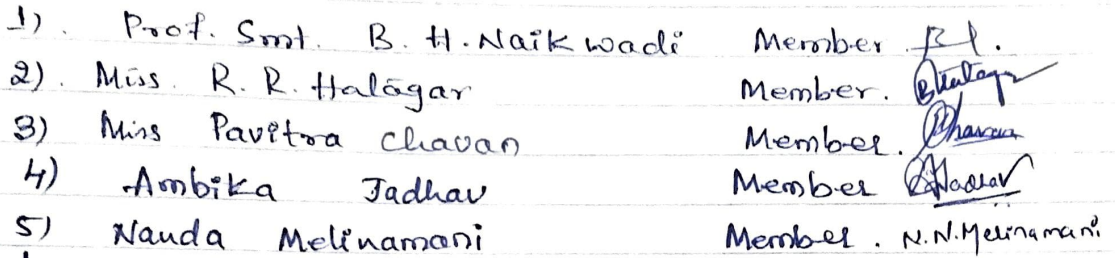 1). Prof. Smt. B. H. Naikwadi Member
2). Miss. R. R. Halagar Member.
3) Miss Pavitra Chavan Member. Chavan
4) Ambika Jadhav Member Jadhav
5) Nanda Melinamani Member. N.N.Melinamani